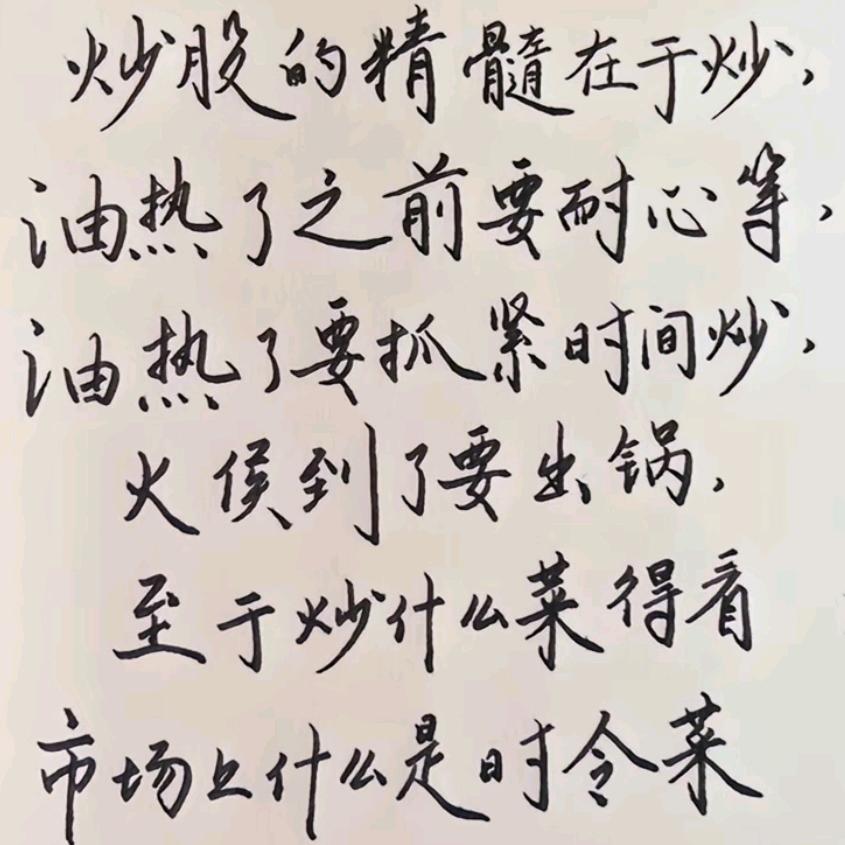 炒股的精髓在于炒,
油热了之前要耐心等,
油热了要抓紧时间炒,
火侯到了要出锅.
至于炒什么菜得看
市场上什么是时令菜